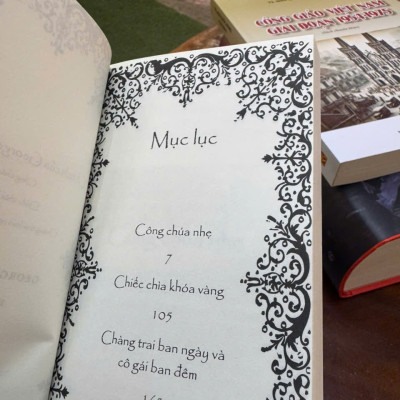 CÔNG GIÁO VIỆT NAM
GIAI ĐOẠN 1954-1975
Mục lục
Công chúa nhẹ
7
Chiếc chìa khóa vàng
105
Chàng trai ban ngày và
cô gái ban đêm